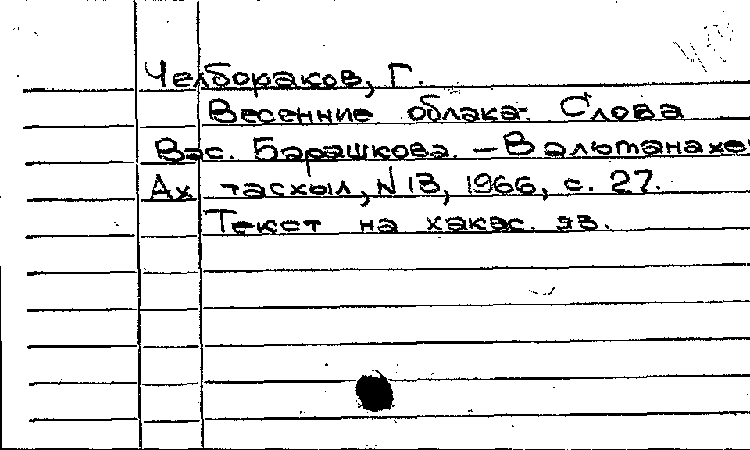 Челбораков, Г.
Весенние облака. Слова
Вас. Барашкова. – В альманахе
Ах тасхыл, N 13, 1966, с. 27.
Текст на хакас. яз.